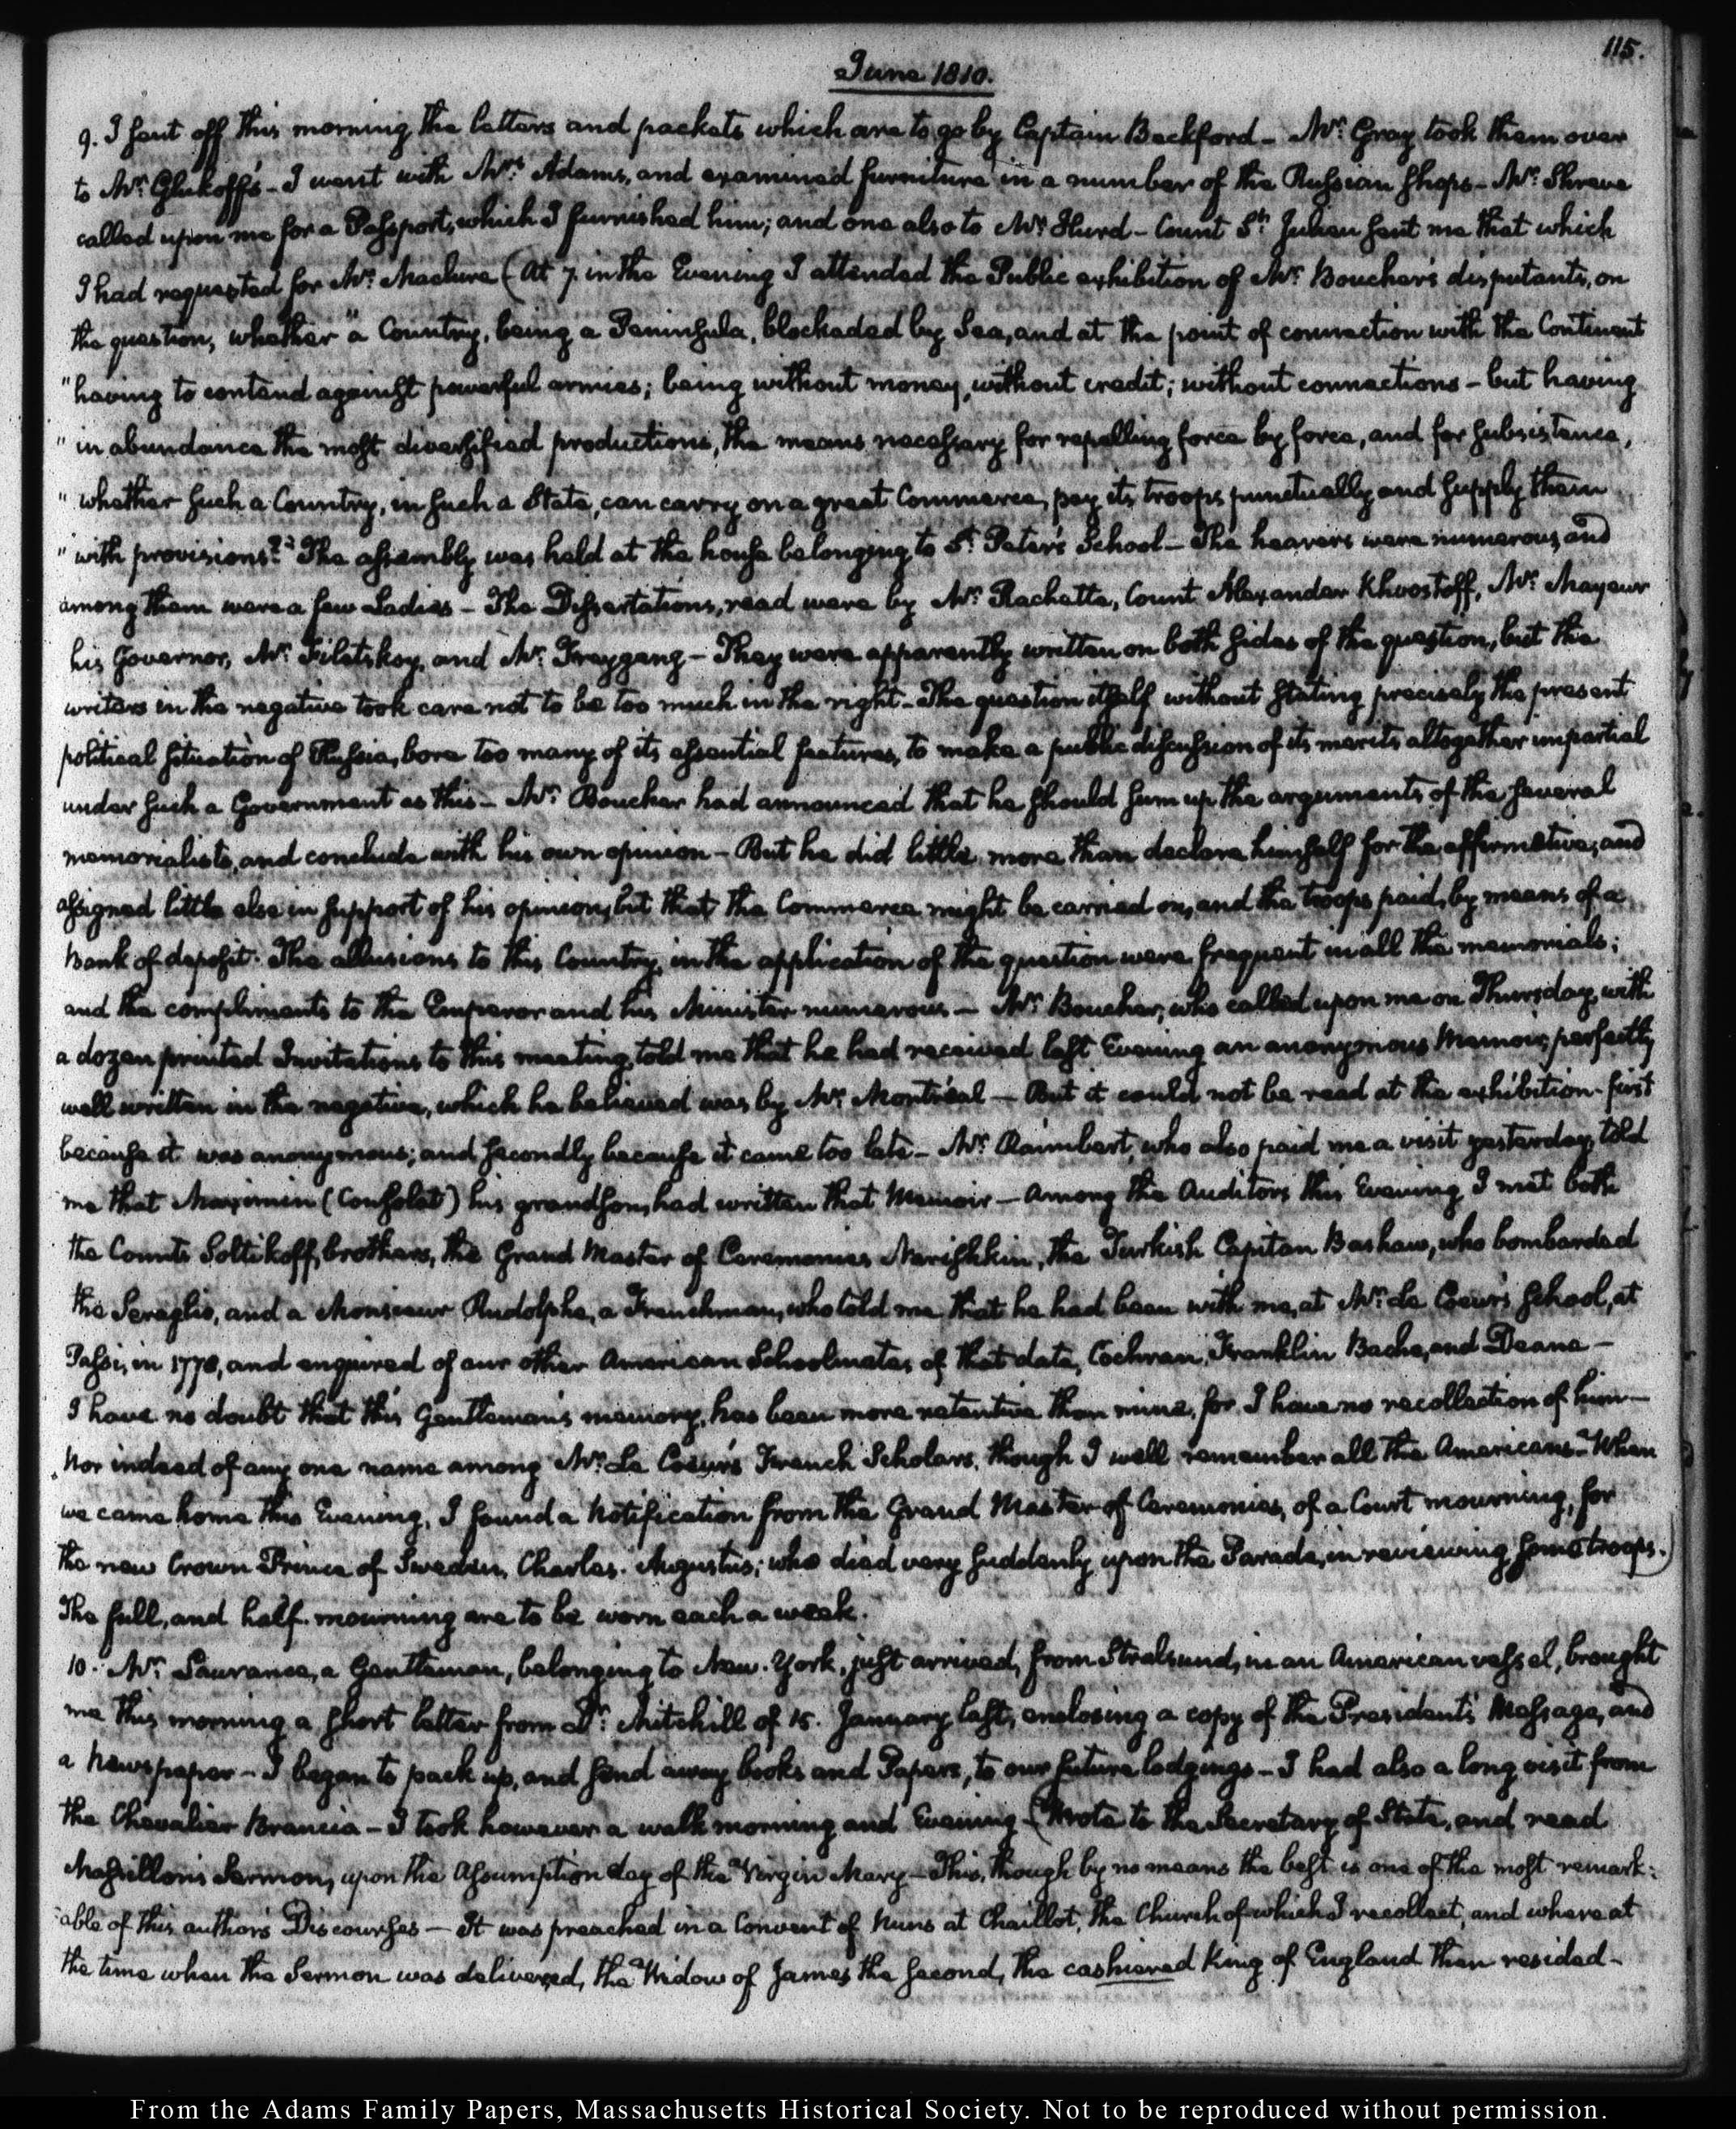 115.
June 1810.
9. I sent off this morning the letters and packets which are to go by Captain Beckford – Mr. Gray took them over
to Mr. Glukoff's – I went with Mrs. Adams, and examined furniture in a number of the Russian shops – Mr. Shreve
called upon me for a Passport, which I furnished him; and one also to Mr. Hurd – Count St. Julien sent me that which
I had requested for Mr. Maclure (At 7. in the Evening I attended the Public exhibition of Mr. Boucher's disputants, on
the question, whether "a Country, being a Peninsula, blockaded by Sea, and at the point of connection with the Continent
"having to contend against powerful armies; being without money, without credit; without connections – but having
"in abundance the most diversified productions, the means necessary for repelling force by force, and for subsistence,
"whether such a Country, in such a State, can carry on a great Commerce, pay its troops punctually and supply them
"with provisions?" The assembly was held at the house belonging to St. Peter's School – The hearers were numerous, and
among them were a few Ladies – The Dissertations, read were by Mr. Rachette, Count Alexander Khvostoff, Mr. Mayeur
his Governor, Mr. Filetskoy, and Mr. Freygang – They were apparently written on both sides of the question, but the
writers in the negative took care not to be too much in the right – The question itself without stating precisely the present
political situation of Russia, bore too many of its essential features, to make a public discussion of its merits altogether impartial
under such a Government as this – Mr. Boucher had announced that he should sum up the arguments of the several
memorialists, and conclude with his own opinion – But he did little more than declare himself for the affirmative; and
assigned little else in support of his opinion, but that the Commerce might be carried on, and the troops paid, by means of a
bank of deposit. The allusions to this Country, in the application of the question were frequent in all the memorials;
and the compliments to the Emperor and his Minister numerous – Mr. Boucher, who called upon me on Thursday, with
a dozen printed Invitations to this meeting, told me that he had received last Evening an anonymous Memoir, perfectly
well written in the negative, which he believed was by Mr. Montréal – But it could not be read at the exhibition – first
because it was anonymous; and secondly because it came too late – Mr. Raimbert, who also paid me a visit yesterday, told
me that Maximin (Consolat) his grandson, had written that Memoir – Among the Auditors this Evening I met both
the Counts Soltikoff, brothers, the Grand Master of Ceremonies Narishkin, the Turkish Capitan Bashaw, who bombarded
the Seraglio, and a Monsieur Rudolphe, a Frenchman, who told me that he had been with me, at Mr. Le Coeur's school, at
Passi, in 1778, and enquired of our other American Schoolmates of that date, Cochran, Franklin Bache, and Deane –
I have no doubt that this Gentleman's memory, has been more retentive than mine, for I have no recollection of him –
Nor indeed of any one name among Mr. Le Coeur's French Scholars, though I well remember all the Americans – When
we came home this Evening, I found a Notification from the Grand Master of Ceremonies, of a Court mourning, for
the new Crown Prince of Sweden, Charles. Augustus; who died very suddenly upon the Parade, in reviewing some troops.)
The full, and half. mourning are to be worn each a week.
10. Mr. Laurance, a Gentleman, belonging to New. York, just arrived, from Stralsund, in an American vessel, brought
me this morning a short letter from Dr. Mitchill of 15. January last, enclosing a copy of the President's Message, and
a Newspaper – I began to pack up, and send away books and Papers, to our future lodgings – I had also a long visit from
the Chevalier Brancia – I took however a walk morning and Evening – (Wrote to the Secretary of State, and read
Massillon's Sermon, upon the Assumption day of the Virgin Mary – This, though by no means the best is one of the most remark:
able of this author's Discourses – It was preached in a Convent of Nuns at Chaillot, the Church of which I recollect, and where at
the time when the Sermon was delivered, the Widow of James the second, the cashiered King of England then resided –
From the Adams Family Papers, Massachusetts Historical Society. Not to be reproduced without permission.